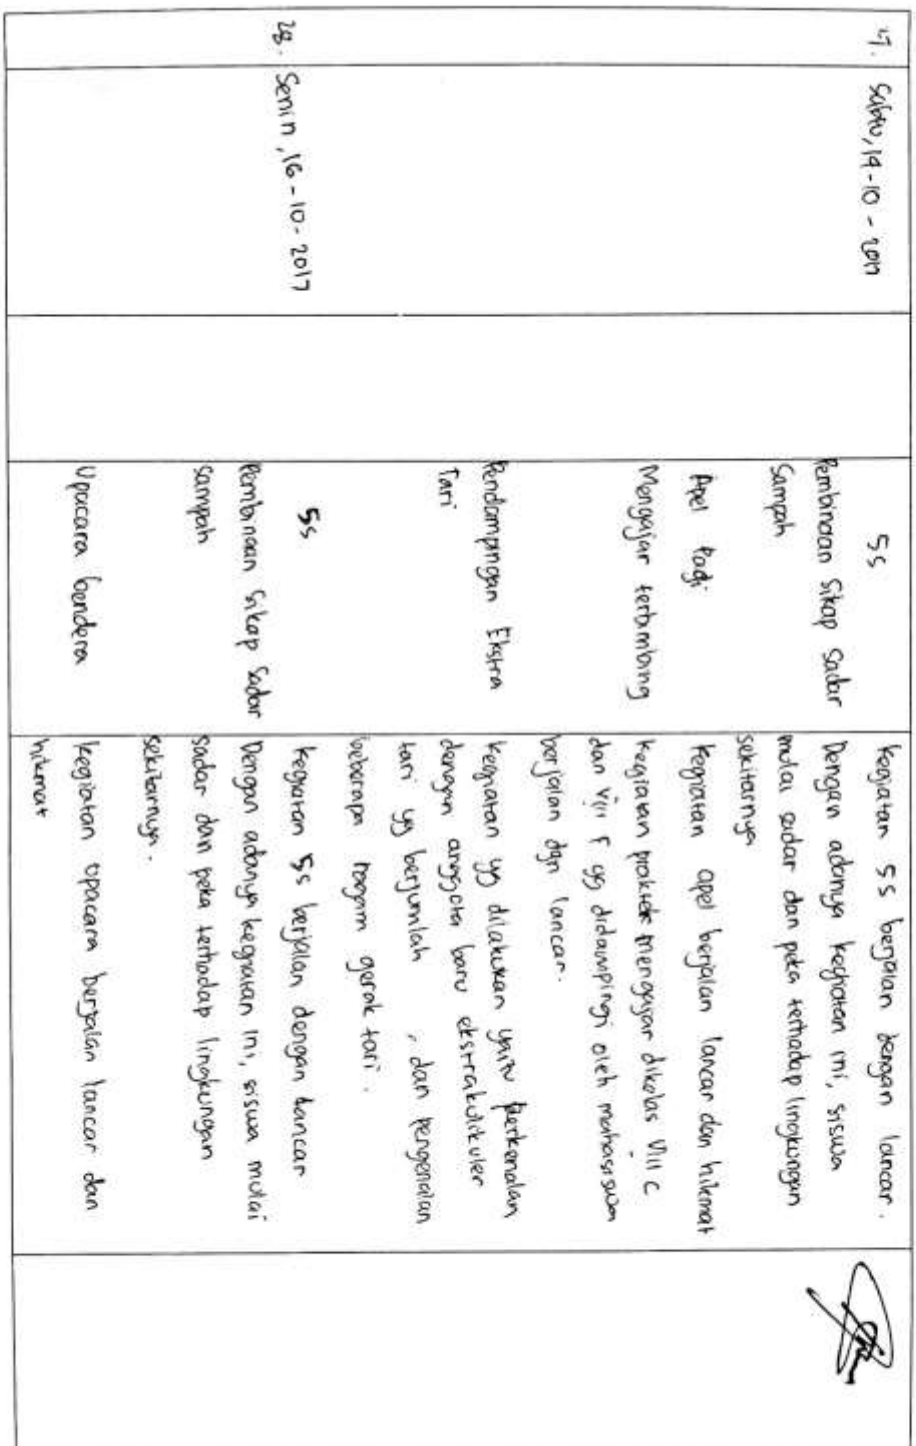 27. Sabtu, 14-10-2017
5s
Kegiatan 5s berjalan dengan lancar.
Pembinaan Sikap Sadar
Sampah
Dengan adanya kegiatan ini, siswa
mulai sadar dan peka terhadap lingkungan
sekitarnya
Apel Pagi
Kegiatan apel berjalan lancar dan hikmat
Mengajar terbimbing
Kegiatan praktek mengajar dikelas VIII C
dan VIII F yg didampingi oleh mahasiswa
berjalan dgn lancar.
Pendampingan Ekstra
Tari
Kegiatan yg dilakukan yaitu perkenalan
dengan anggota baru ekstrakulikuler
tari yg berjumlah , dan pengenalan
beberapa ragam gerak tari.
28. Senin, 16-10-2017
5s
Kegiatan 5s berjalan dengan lancar
Pembinaan Sikap Sadar
Sampah
Dengan adanya kegiatan ini, siswa mulai
sadar dan peka terhadap lingkungan
sekitarnya.
Upacara bendera
Kegiatan upacara berjalan lancar dan
hikmat